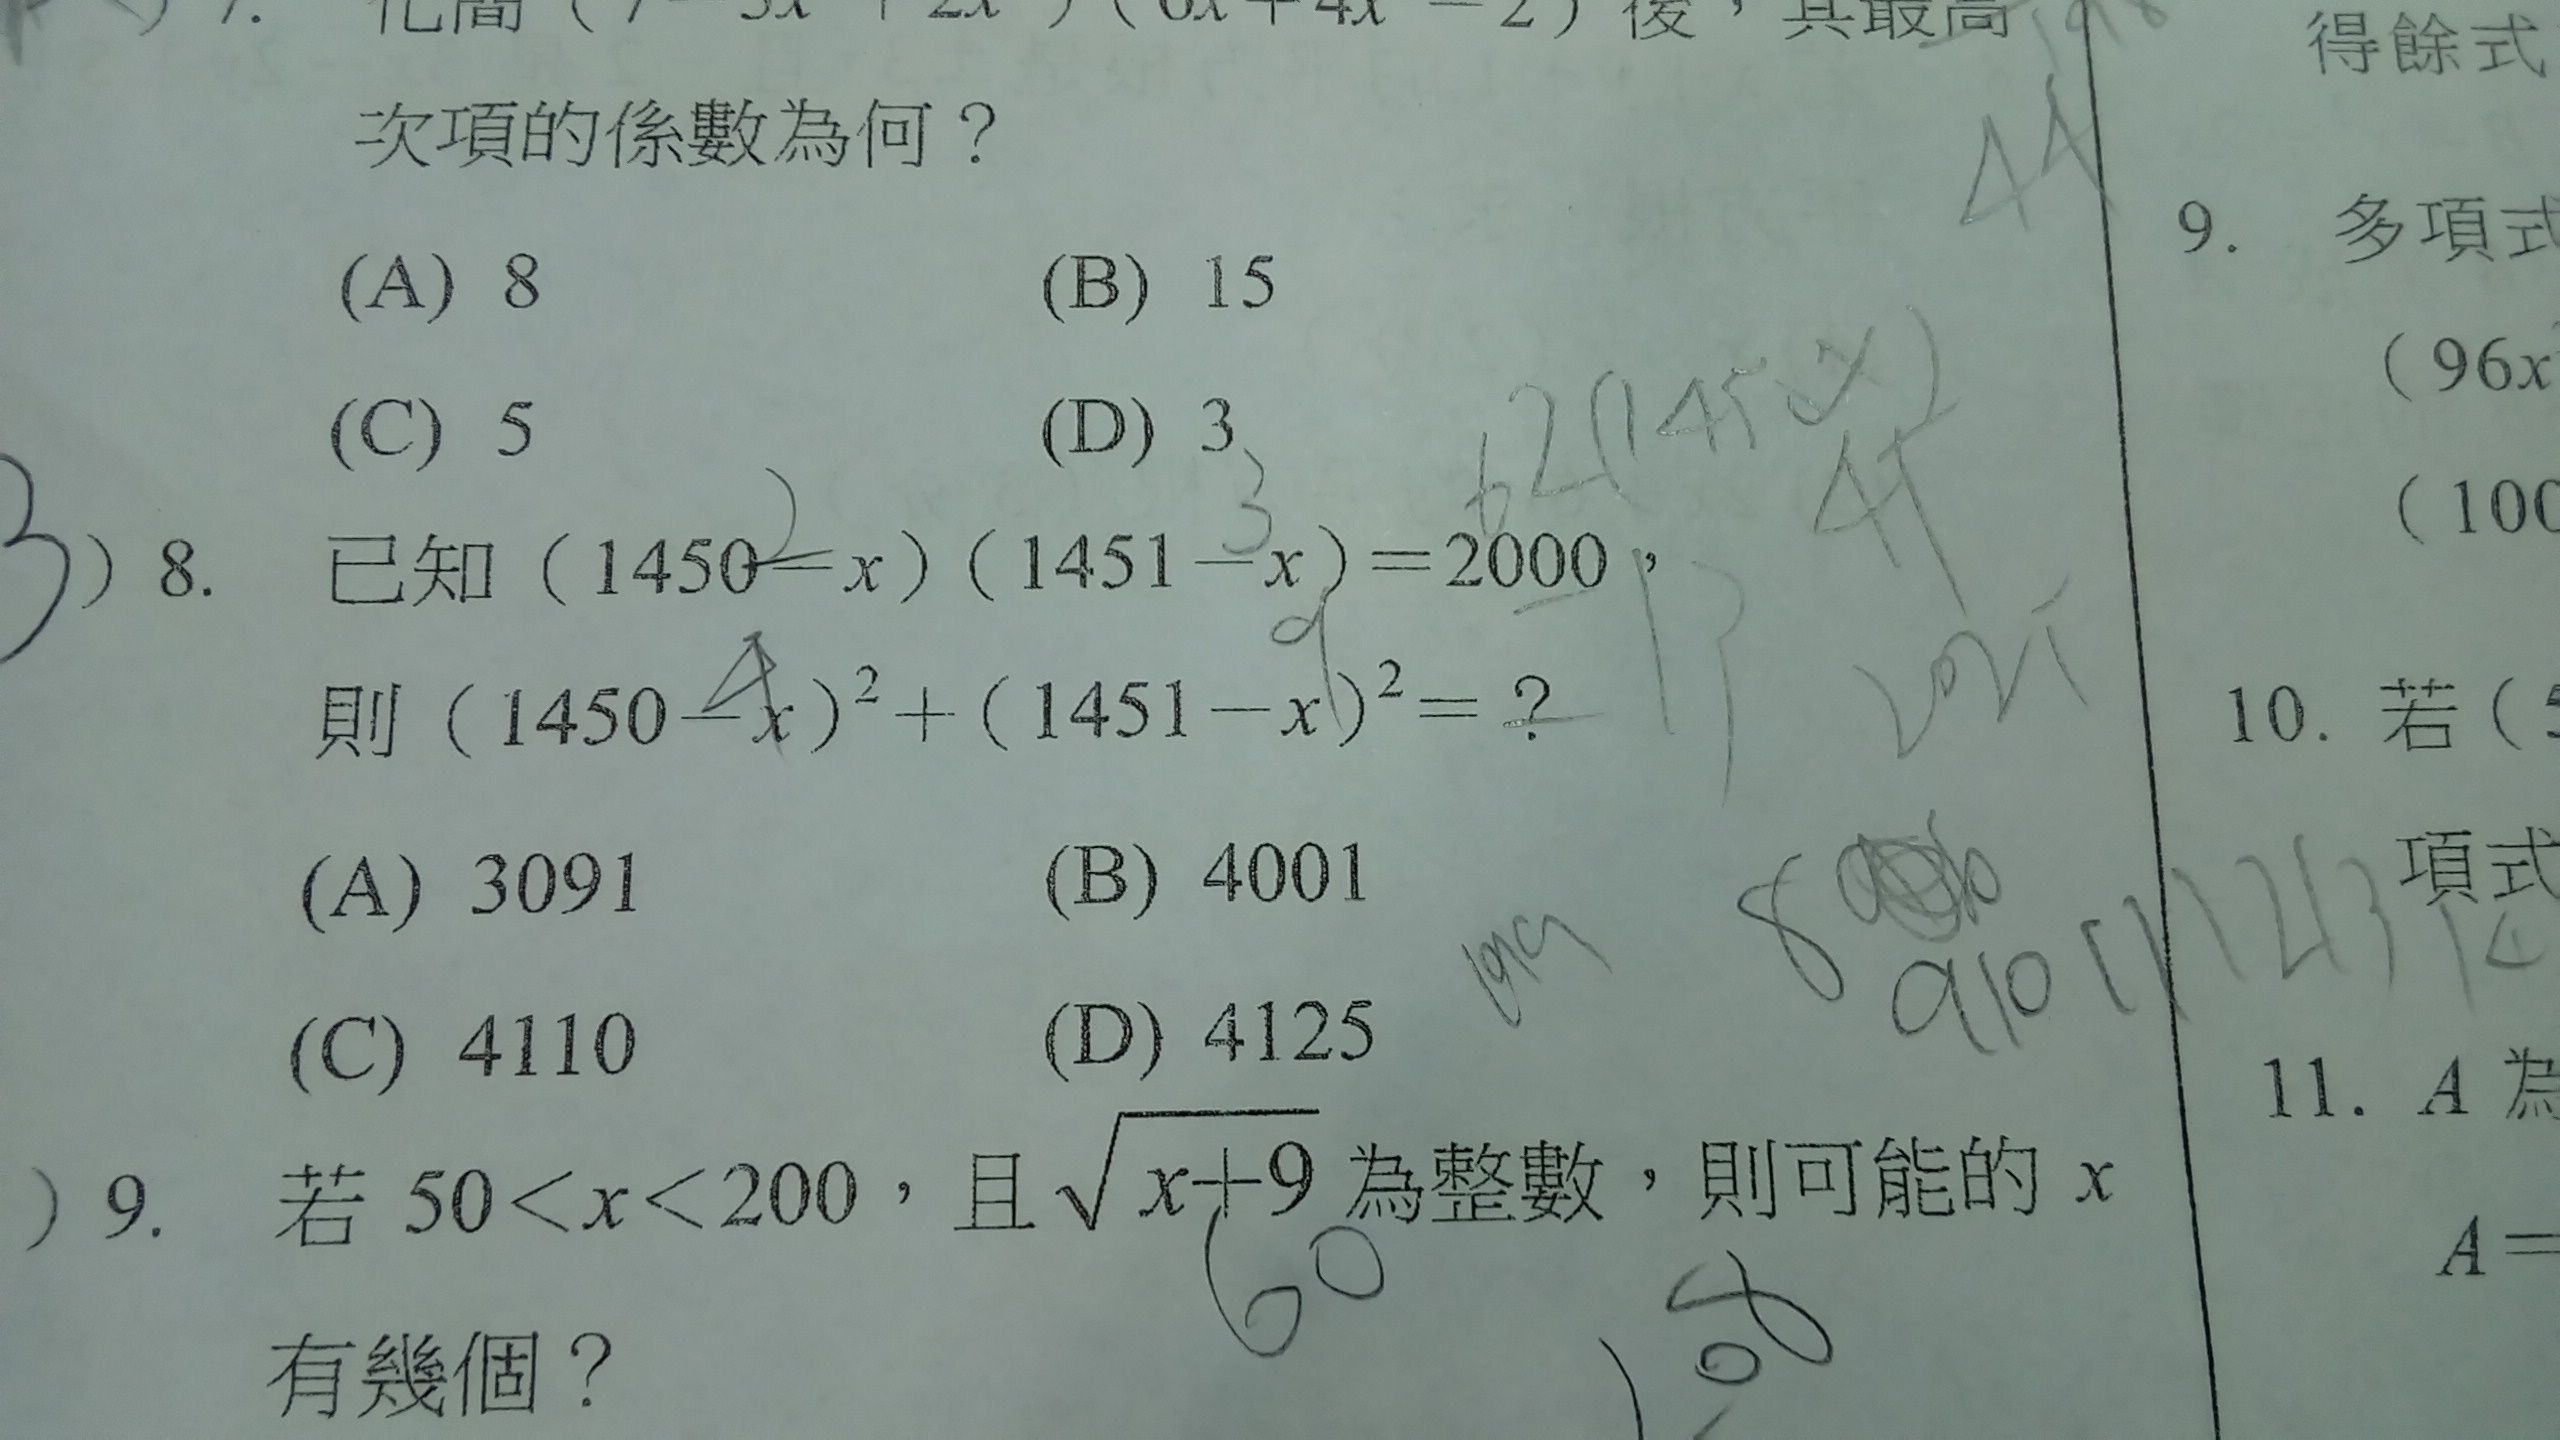 7. 化簡（7－3x＋2x）（6x＋4x－2）後，其最高
次項的係數為何？
(A) 8 (B) 15
(C) 5 (D) 3
3）8. 已知（1450－x）（1451－x）＝2000，
則（1450－x）²＋（1451－x）²＝？
(A) 3091 (B) 4001
(C) 4110 (D) 4125
）9. 若 50＜x＜200，且√x+9 為整數，則可能的 x
60
有幾個？
得餘式
44
9. 多項式
（96x
（100
10. 若（5
項式
11. A 為
A＝